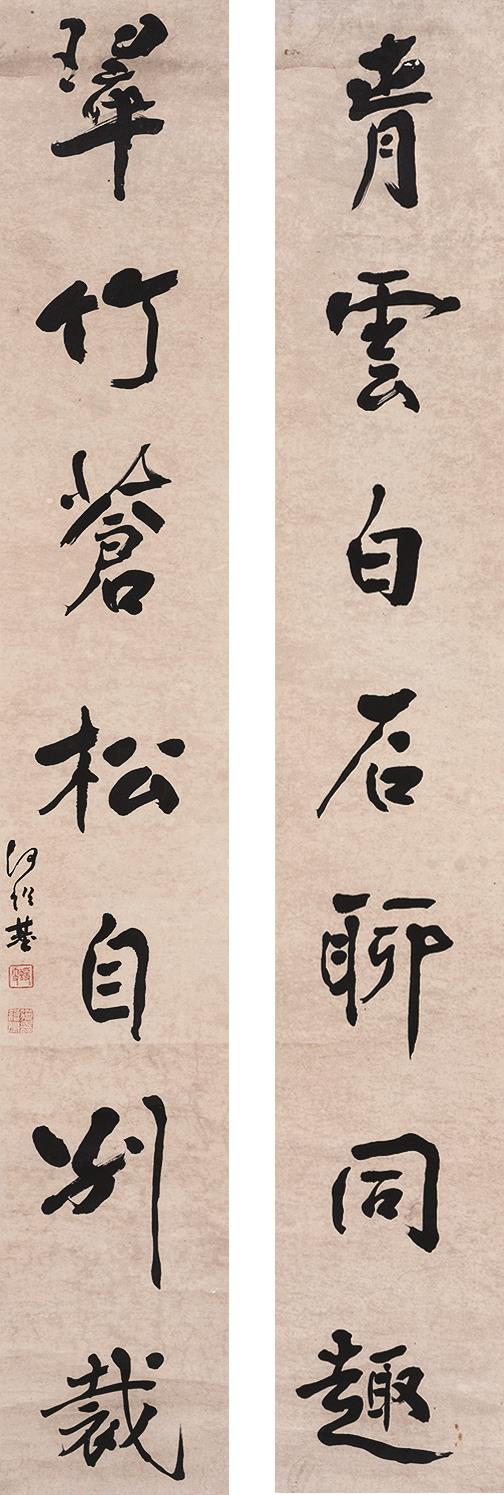 青雲白石聊同趣
翠竹蒼松自別裁
何紹基